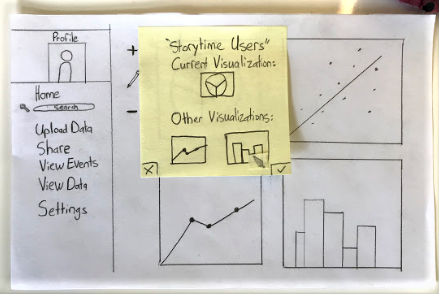 Profile
Home
Search
Upload Data
Share
View Events
View Data
Settings
"Storytime Users"
Current Visualization:
Other Visualizations: